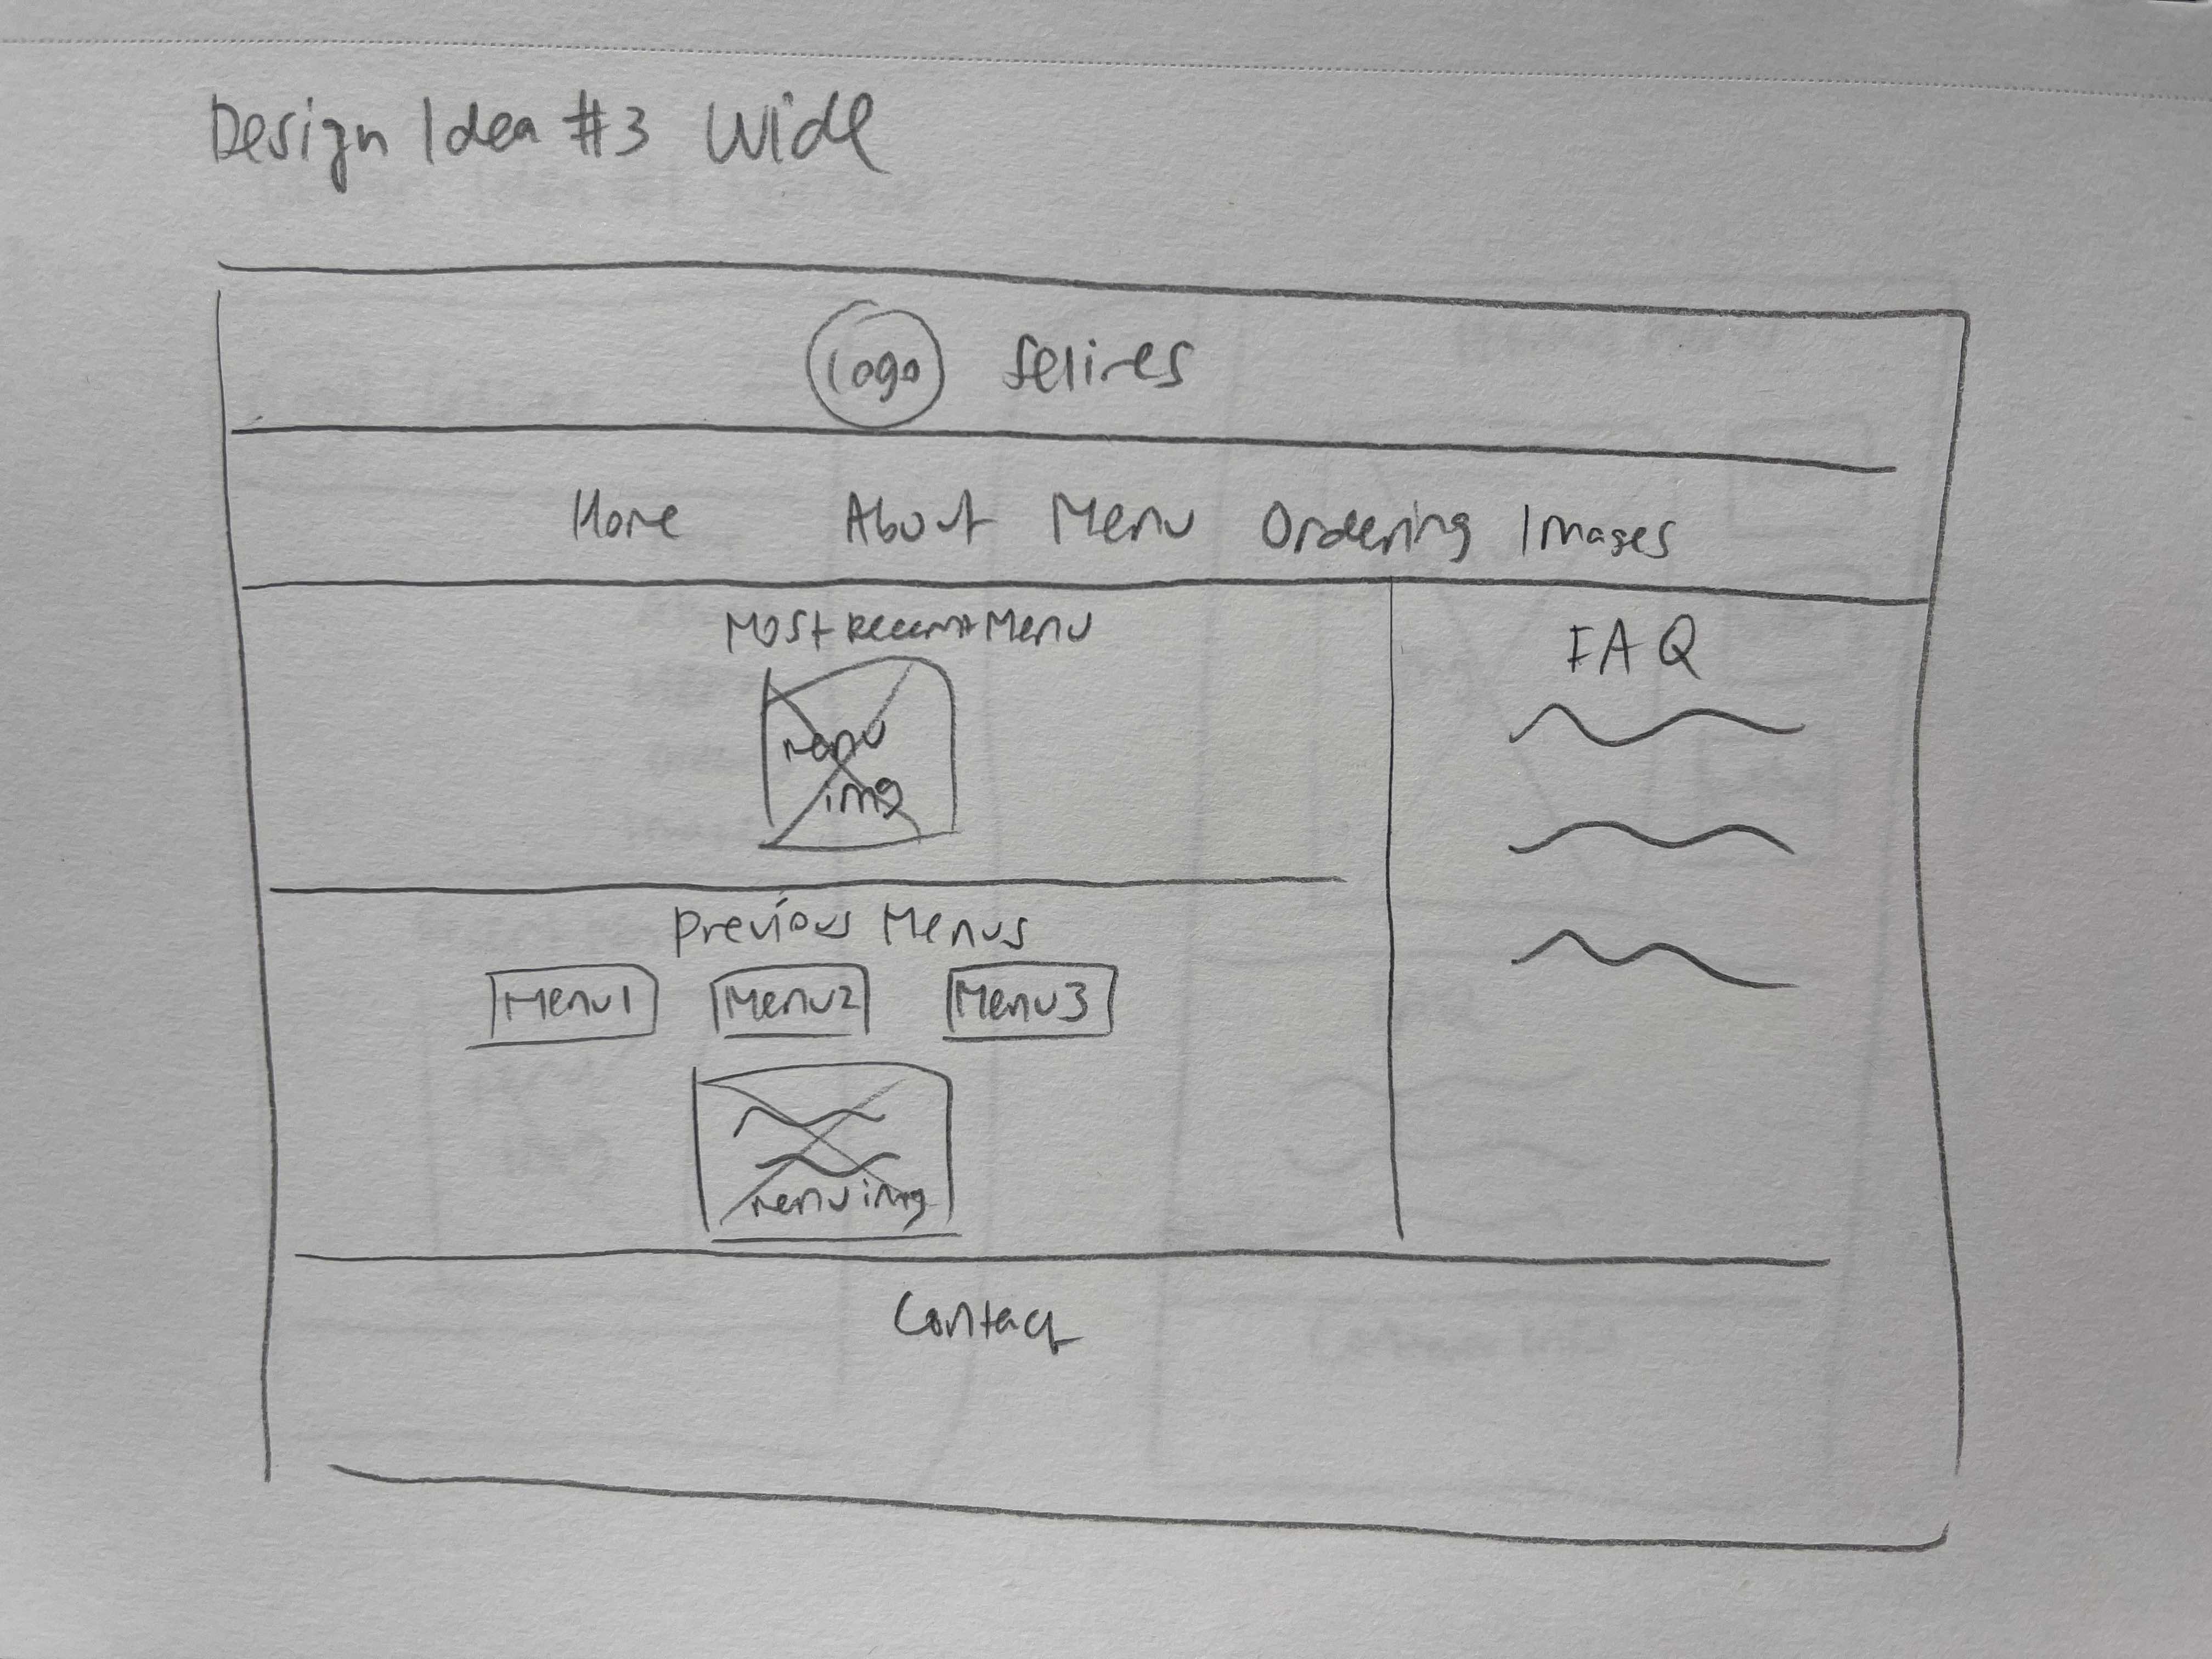 Design Idea #3 Wide
Logo Selires
Home About Menu Ordering Images
Most Recent Menu
menu
img
FAQ
Previous Menus
Menu1 Menu2 Menu3
menu img
Contact